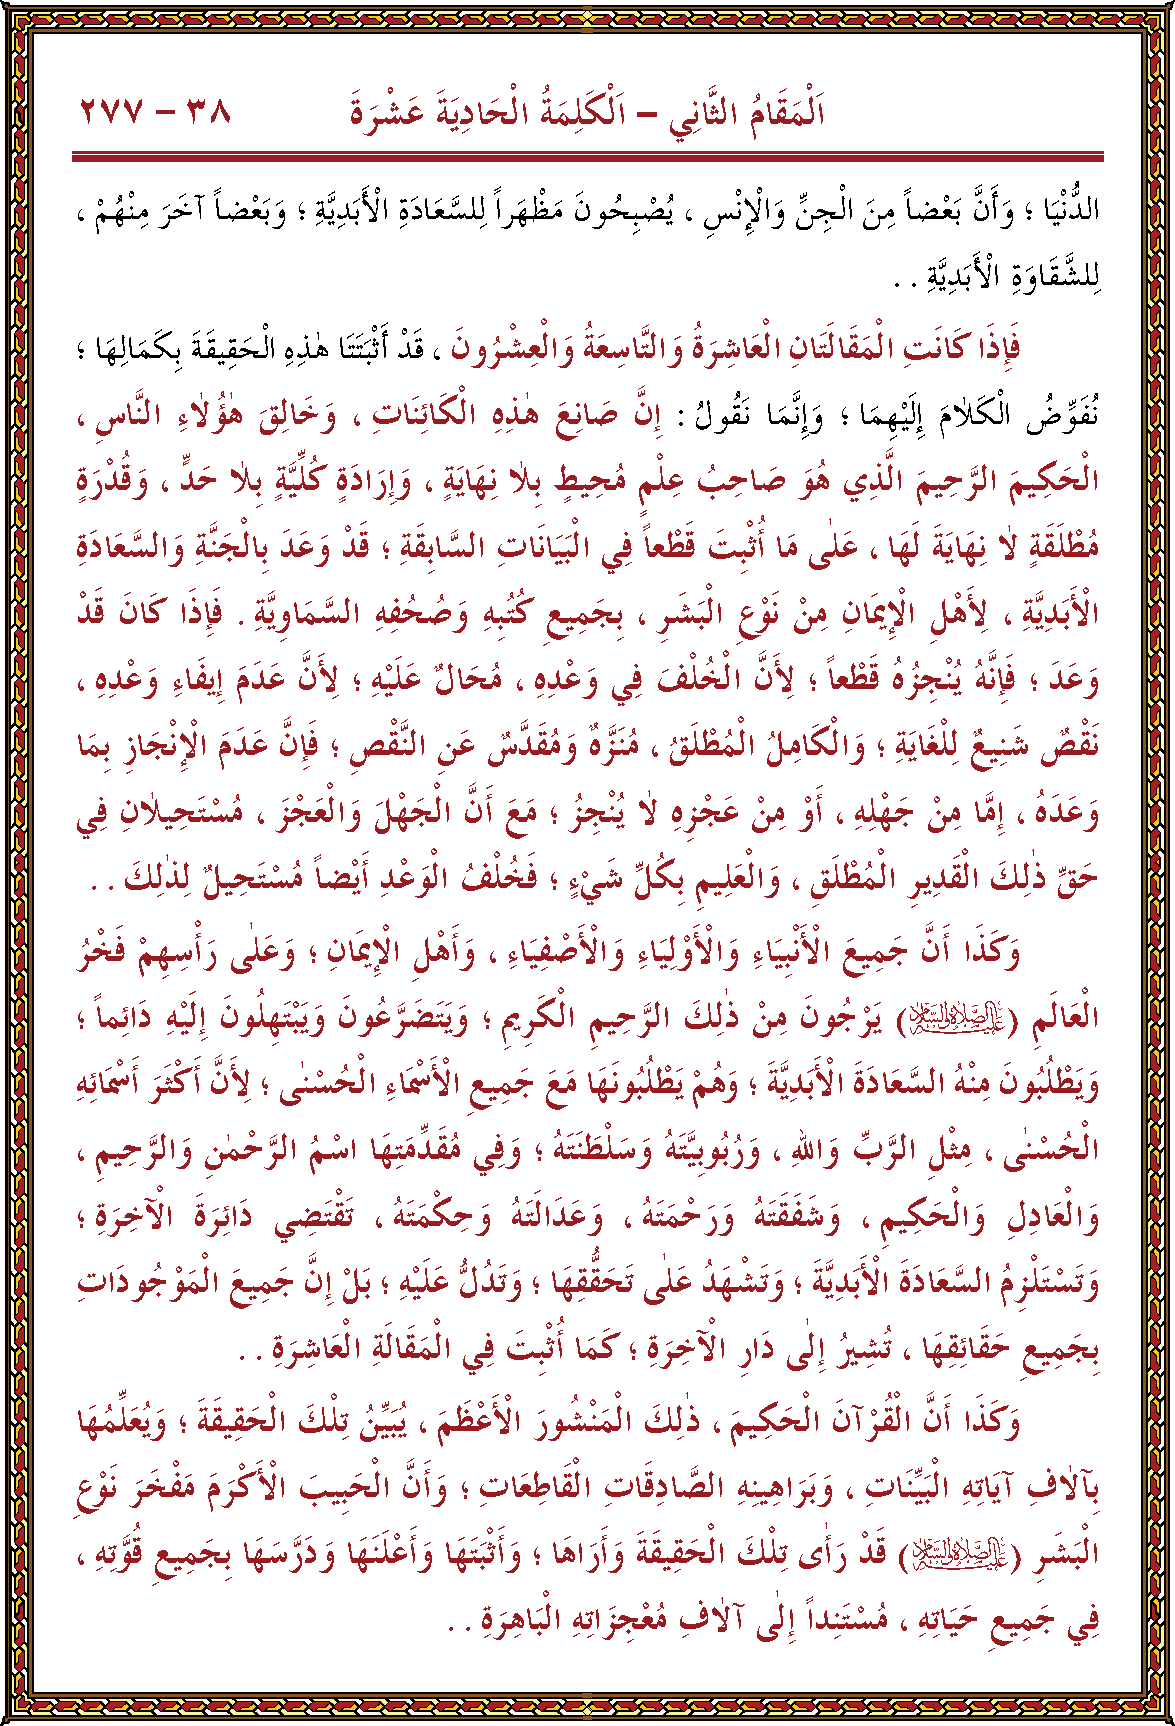 اَلْمَقَامُ الثَّانِي – اَلْكَلِمَةُ الْحَادِيَةَ عَشْرَةَ ٣٨ – ٢٧٧
الدُّنْيَا ؛ وَأَنَّ بَعْضاً مِنَ الْجِنِّ وَالْإِنْسِ ، يُصْبِحُونَ مَظْهَراً لِلسَّعَادَةِ الْأَبَدِيَّةِ ؛ وَبَعْضاً آخَرَ مِنْهُمْ ،
لِلشَّقَاوَةِ الْأَبَدِيَّةِ . .
فَإِذَا كَانَتِ الْمَقَالَتَانِ الْعَاشِرَةُ وَالتَّاسِعَةُ وَالْعِشْرُونَ ، قَدْ أَثْبَتَتَا هٰذِهِ الْحَقِيقَةَ بِكَمَالِهَا ؛
نُفَوِّضُ الْكَلَامَ إِلَيْهِمَا ؛ وَإِنَّمَا نَقُولُ : إِنَّ صَانِعَ هٰذِهِ الْكَائِنَاتِ ، وَخَالِقَ هٰؤُلَاءِ النَّاسِ ،
الْحَكِيمَ الرَّحِيمَ الَّذِي هُوَ صَاحِبُ عِلْمٍ مُحِيطٍ بِلَا نِهَايَةٍ ، وَإِرَادَةٍ كُلِّيَّةٍ بِلَا حَدٍّ ، وَقُدْرَةٍ
مُطْلَقَةٍ لَا نِهَايَةَ لَهَا ، عَلٰى مَا أُثْبِتَ قَطْعاً فِي الْبَيَانَاتِ السَّابِقَةِ ؛ قَدْ وَعَدَ بِالْجَنَّةِ وَالسَّعَادَةِ
الْأَبَدِيَّةِ ، لِأَهْلِ الْإِيمَانِ مِنْ نَوْعِ الْبَشَرِ ، بِجَمِيعِ كُتُبِهِ وَصُحُفِهِ السَّمَاوِيَّةِ . فَإِذَا كَانَ قَدْ
وَعَدَ ؛ فَإِنَّهُ يُنْجِزُهُ قَطْعاً ؛ لِأَنَّ الْخُلْفَ فِي وَعْدِهِ ، مُحَالٌ عَلَيْهِ ؛ لِأَنَّ عَدَمَ إِيفَاءِ وَعْدِهِ ،
نَقْصٌ شَنِيعٌ لِلْغَايَةِ ؛ وَالْكَامِلُ الْمُطْلَقُ ، مُنَزَّهٌ وَمُقَدَّسٌ عَنِ النَّقْصِ ؛ فَإِنَّ عَدَمَ الْإِنْجَازِ بِمَا
وَعَدَهُ ، إِمَّا مِنْ جَهْلِهِ ، أَوْ مِنْ عَجْزِهِ لَا يُنْجِزُ ؛ مَعَ أَنَّ الْجَهْلَ وَالْعَجْزَ ، مُسْتَحِيلَانِ فِي
حَقِّ ذٰلِكَ الْقَدِيرِ الْمُطْلَقِ ، وَالْعَلِيمِ بِكُلِّ شَيْءٍ ؛ فَخُلْفُ الْوَعْدِ أَيْضاً مُسْتَحِيلٌ لِذٰلِكَ . .
وَكَذَا أَنَّ جَمِيعَ الْأَنْبِيَاءِ وَالْأَوْلِيَاءِ وَالْأَصْفِيَاءِ ، وَأَهْلِ الْإِيمَانِ ؛ وَعَلٰى رَأْسِهِمْ فَخْرُ
الْعَالَمِ (عَلَيْهِ الصَّلَاةُ وَالسَّلَامُ) يَرْجُونَ مِنْ ذٰلِكَ الرَّحِيمِ الْكَرِيمِ ؛ وَيَتَضَرَّعُونَ وَيَبْتَهِلُونَ إِلَيْهِ دَائِماً ؛
وَيَطْلُبُونَ مِنْهُ السَّعَادَةَ الْأَبَدِيَّةَ ؛ وَهُمْ يَطْلُبُونَهَا مَعَ جَمِيعِ الْأَسْمَاءِ الْحُسْنٰى ؛ لِأَنَّ أَكْثَرَ أَسْمَائِهِ
الْحُسْنٰى ، مِثْلِ الرَّبِّ وَاللهِ ، وَرُبُوبِيَّتَهُ وَسَلْطَنَتَهُ ؛ وَفِي مُقَدِّمَتِهَا اسْمُ الرَّحْمٰنِ وَالرَّحِيمِ ،
وَالْعَادِلِ وَالْحَكِيمِ ، وَشَفَقَتَهُ وَرَحْمَتَهُ ، وَعَدَالَتَهُ وَحِكْمَتَهُ ، تَقْتَضِي دَائِرَةَ الْآخِرَةِ ؛
وَتَسْتَلْزِمُ السَّعَادَةَ الْأَبَدِيَّةَ ؛ وَتَشْهَدُ عَلٰى تَحَقُّقِهَا ؛ وَتَدُلُّ عَلَيْهِ ؛ بَلْ إِنَّ جَمِيعَ الْمَوْجُودَاتِ
بِجَمِيعِ حَقَائِقِهَا ، تُشِيرُ إِلٰى دَارِ الْآخِرَةِ ؛ كَمَا أُثْبِتَ فِي الْمَقَالَةِ الْعَاشِرَةِ . .
وَكَذَا أَنَّ الْقُرْآنَ الْحَكِيمَ ، ذٰلِكَ الْمَنْشُورَ الْأَعْظَمَ ، يُبَيِّنُ تِلْكَ الْحَقِيقَةَ ؛ وَيُعَلِّمُهَا
بِآلَافِ آيَاتِهِ الْبَيِّنَاتِ ، وَبَرَاهِينِهِ الصَّادِقَاتِ الْقَاطِعَاتِ ؛ وَأَنَّ الْحَبِيبَ الْأَكْرَمَ مَفْخَرَ نَوْعِ
الْبَشَرِ (عَلَيْهِ الصَّلَاةُ وَالسَّلَامُ) قَدْ رَأٰى تِلْكَ الْحَقِيقَةَ وَأَرَاهَا ؛ وَأَثْبَتَهَا وَأَعْلَنَهَا وَدَرَّسَهَا بِجَمِيعِ قُوَّتِهِ ،
فِي جَمِيعِ حَيَاتِهِ ، مُسْتَنِداً إِلٰى آلَافِ مُعْجِزَاتِهِ الْبَاهِرَةِ . .